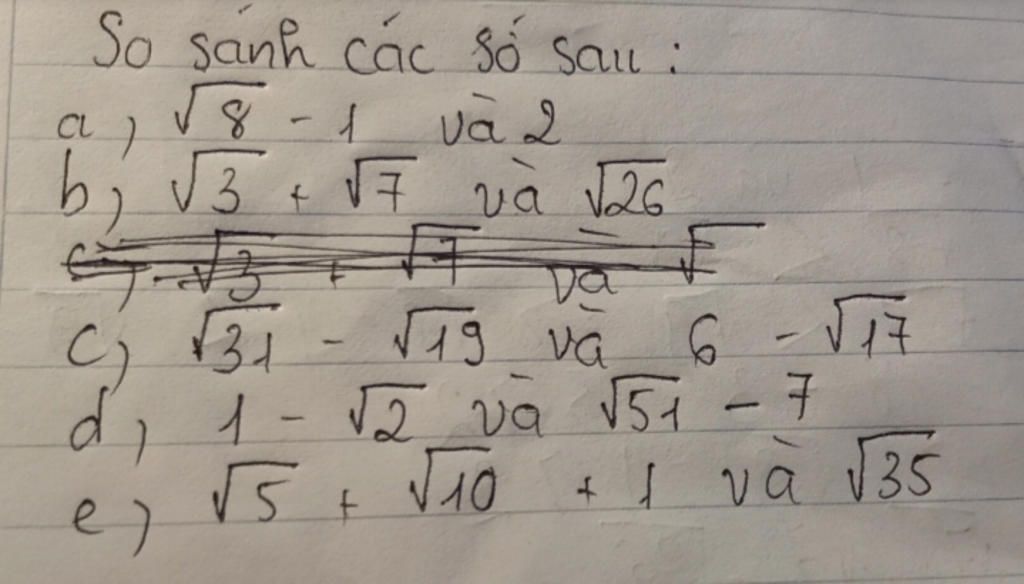 So sánh các số sau :
a, √8 - 1 và 2
b, √3 + √7 và √26
c, -√3 + √7 và √
c, √31 - √19 và 6 - √17
d, 1 - √2 và √51 - 7
e, √5 + √10 + 1 và √35